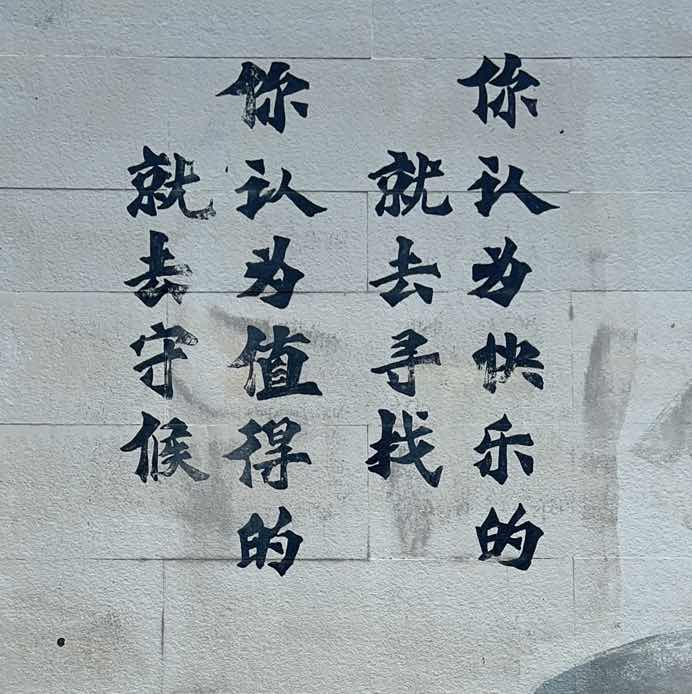 你认为快乐的
就去寻找
你认为值得的
就去守候